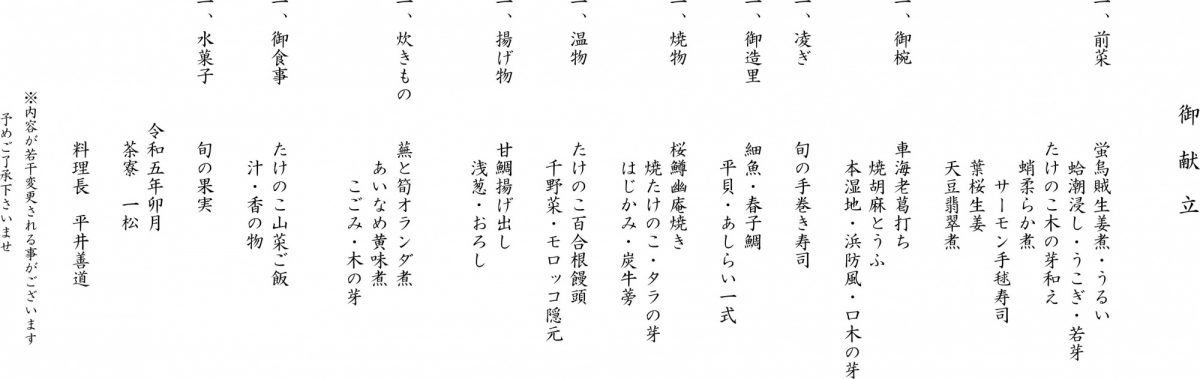 御献立
一、前菜
蛍烏賊生姜煮・うるい
蛤潮浸し・うこぎ・若芽
たけのこ木の芽和え
蛸柔らか煮
サーモン手毬寿司
葉桜生姜
天豆翡翠煮
一、御椀
車海老葛打ち
焼胡麻とうふ
本湿地・浜防風・口木の芽
一、凌ぎ
旬の手巻き寿司
一、御造里
細魚・春子鯛
平貝・あしらい一式
一、焼物
桜鱒幽庵焼き
焼たけのこ・タラの芽
はじかみ・炭牛蒡
一、温物
たけのこ百合根饅頭
千野菜・モロッコ隠元
一、揚げ物
甘鯛揚げ出し
浅葱・おろし
一、炊きもの
蕪と筍オランダ煮
あいなめ黄味煮
こごみ・木の芽
一、御食事
たけのこ山菜ご飯
汁・香の物
一、水菓子
旬の果実
令和五年卯月
茶寮 一松
料理長 平井善道
※内容が若干変更される事がございます
予めご了承下さいませ